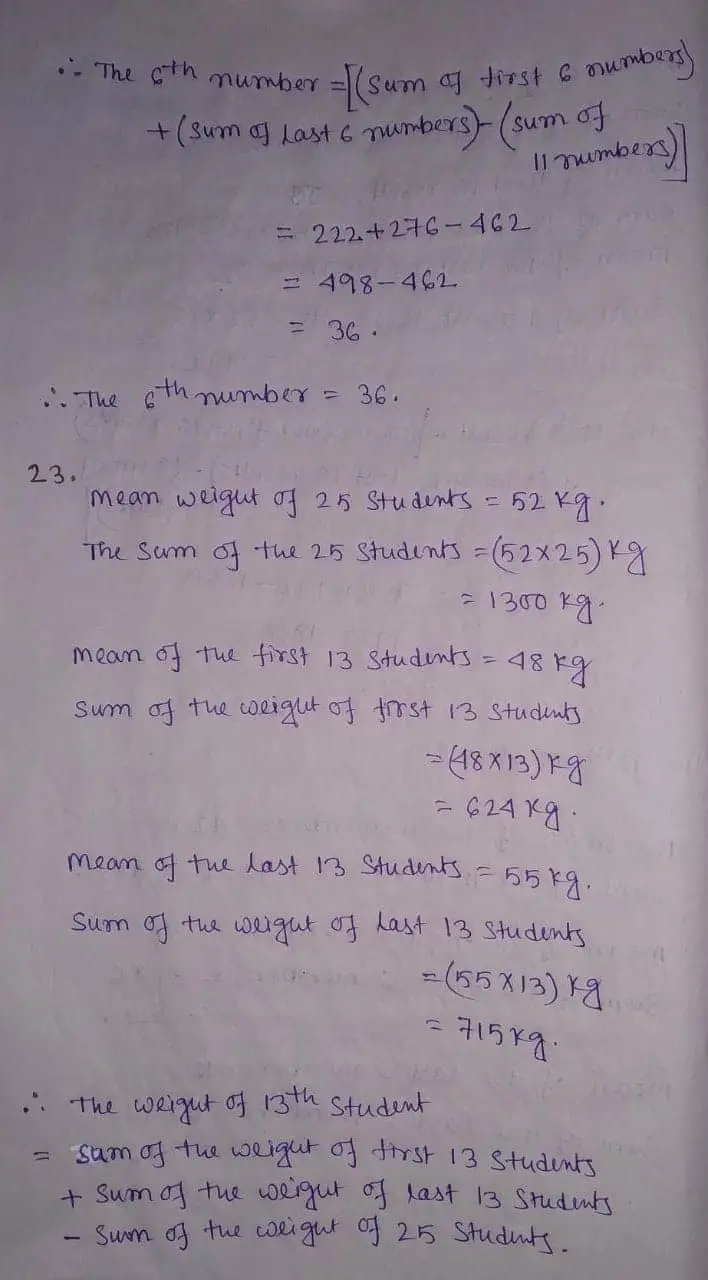 ∴ The 6th number = [(sum of first 6 numbers)
+ (sum of last 6 numbers) - (sum of
11 numbers)]
= 222 + 276 - 462
= 498 - 462
= 36.
∴ The 6th number = 36.
23.
mean weight of 25 students = 52 kg.
The sum of the 25 students = (52 × 25) kg
= 1300 kg.
mean of the first 13 students = 48 kg
sum of the weight of first 13 students
= (48 × 13) kg
= 624 kg.
mean of the last 13 students = 55 kg.
sum of the weight of last 13 students
= (55 × 13) kg
= 715 kg.
∴ The weight of 13th student
= sum of the weight of first 13 students
+ sum of the weight of last 13 students
- sum of the weight of 25 students.